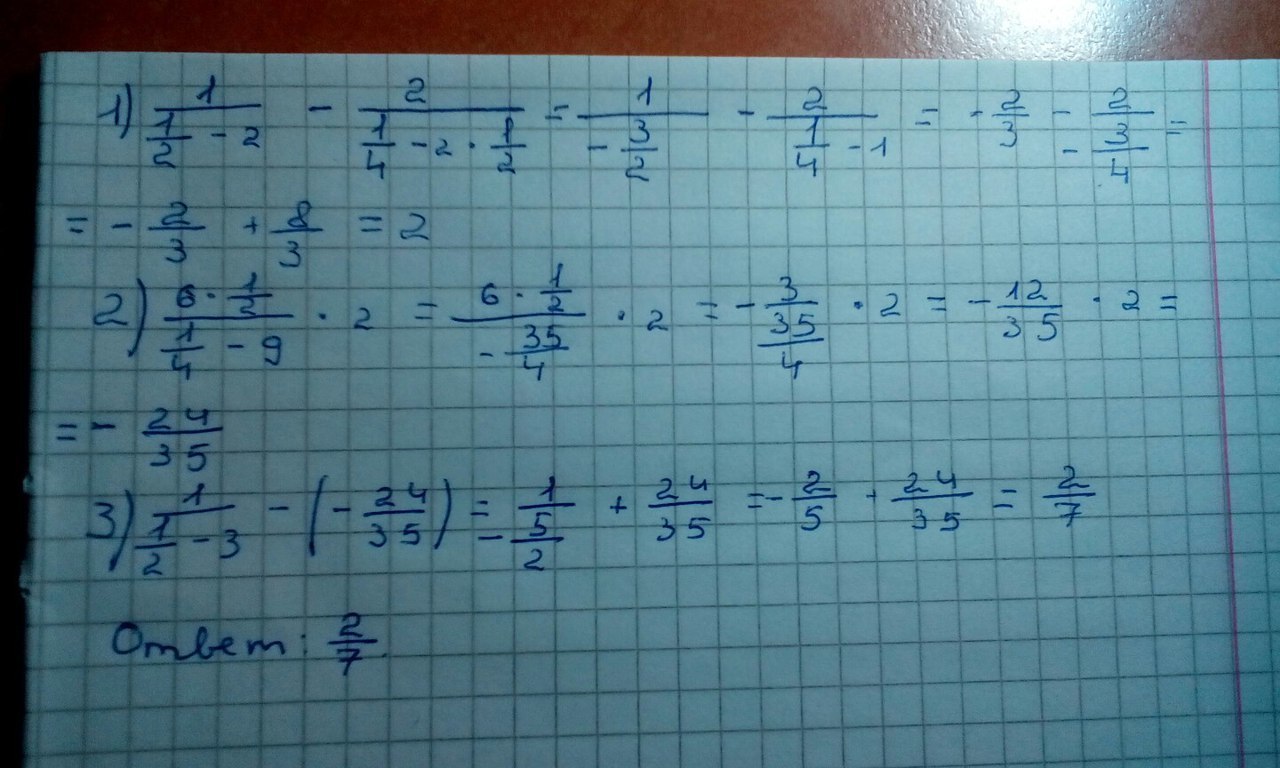 1) 1/(1/2 - 2) - 2/(1/4 - 2 · 1/2) = 1/(- 3/2) - 2/(1/4 - 1) = - 2/3 - 2/(- 3/4) =
= - 2/3 + 8/3 = 2
2) (6 · 1/2)/(1/4 - 9) · 2 = (6 · 1/2)/(- 35/4) · 2 = - 3/(35/4) · 2 = - 12/35 · 2 =
= - 24/35
3) 1/(1/2 - 3) - (- 24/35) = 1/(- 5/2) + 24/35 = - 2/5 - 24/35 = 2/7
Ответ: 2/7.